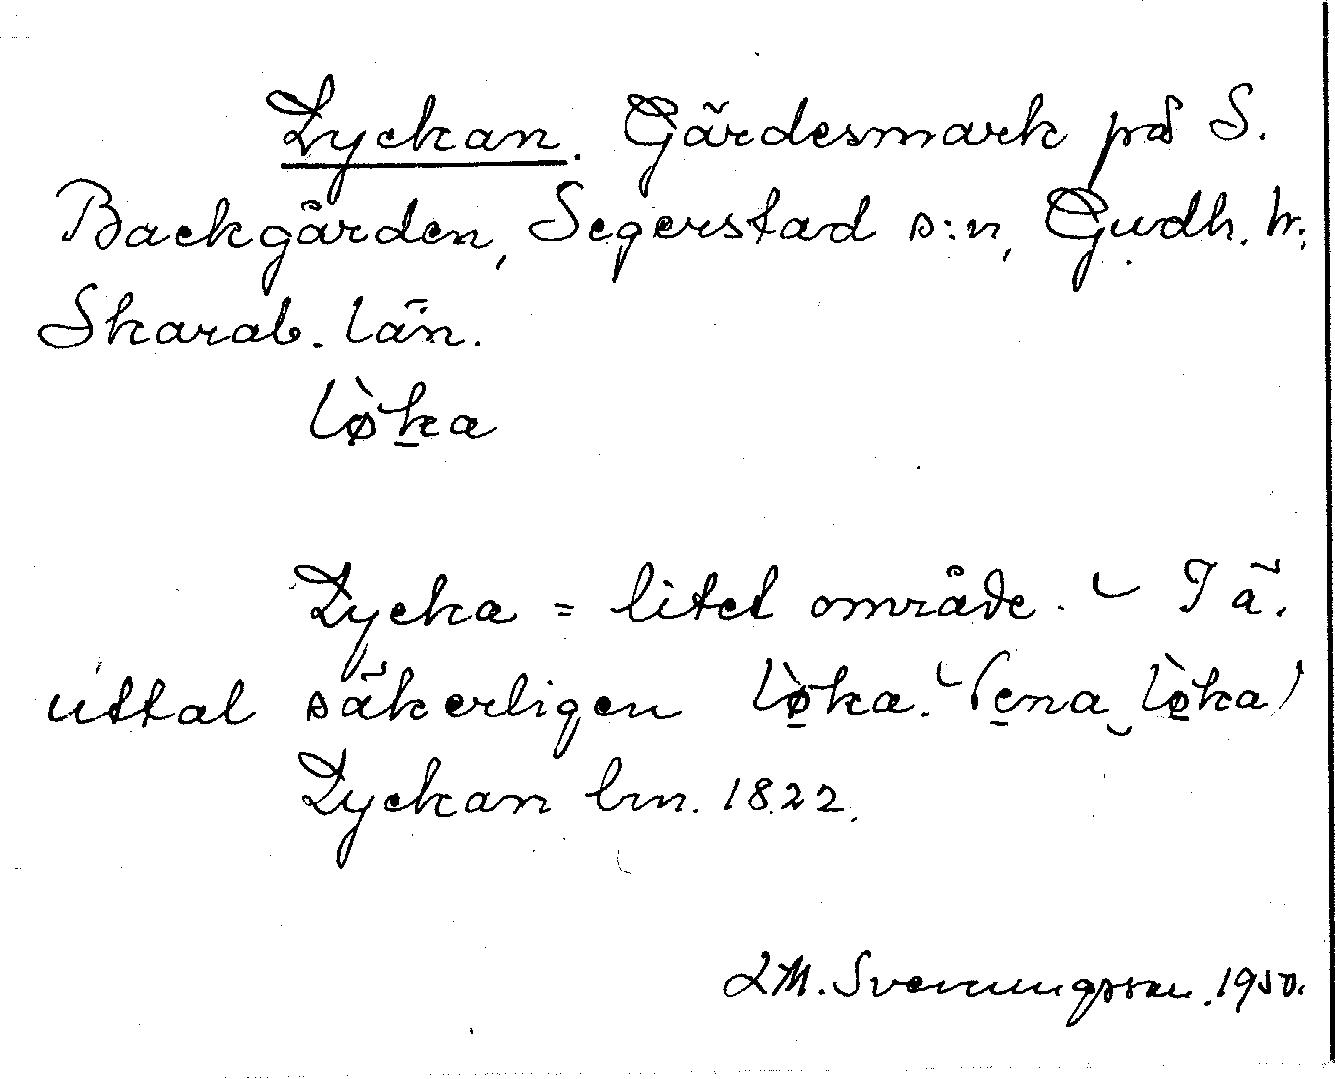 Lyckan. Gärdesmark på S.
Backgården, Segerstad s:n, Gudh. hr.
Skarab. län.
lø̀ka
Lycka = litet område. – I ä.
uttal säkerligen lø̀ka. (ena lø̀ka)
Lyckan lm. 1822.
LM. Svenungsson. 1950.